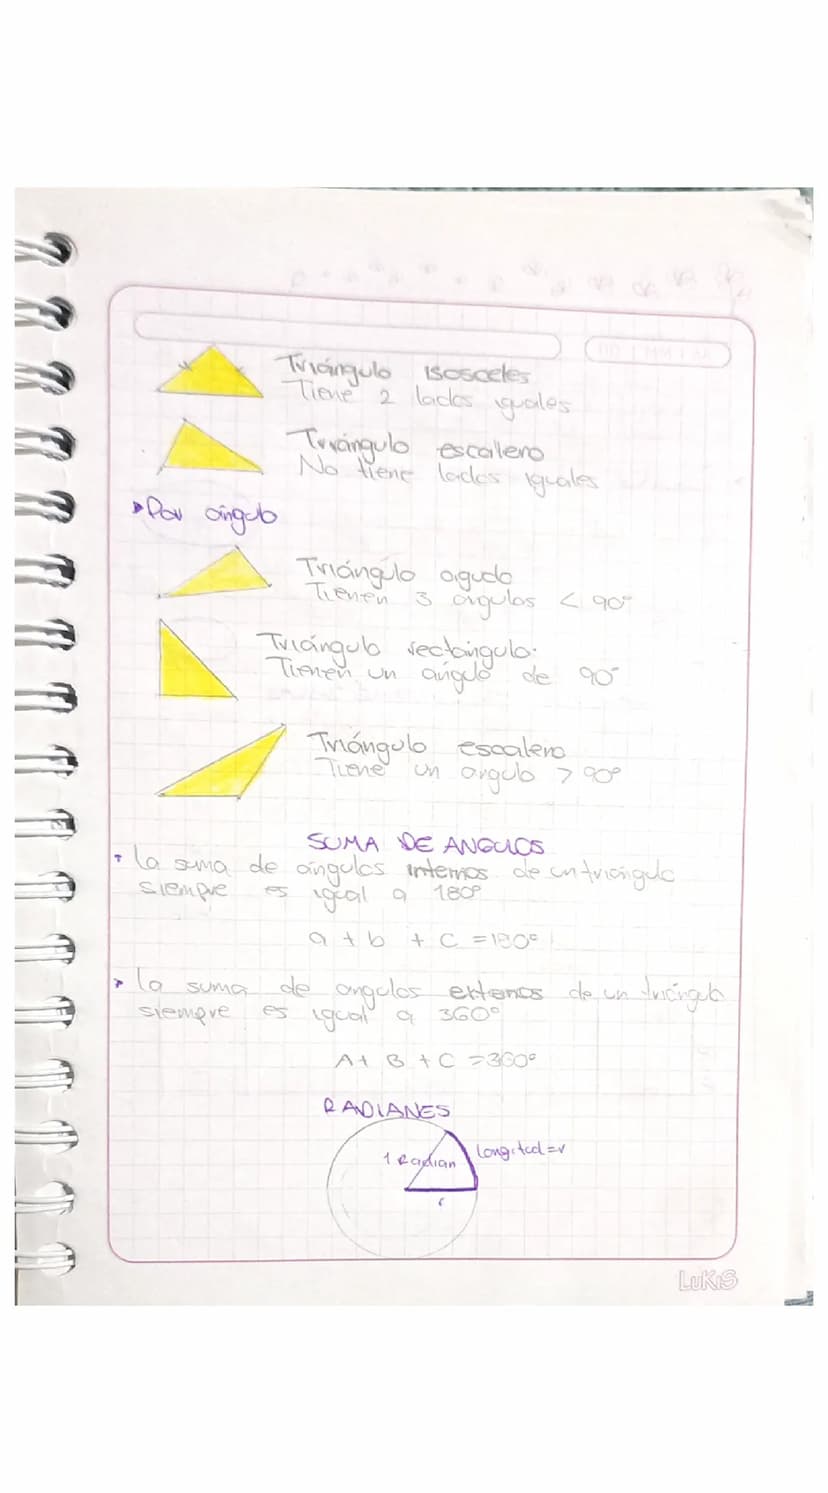 Triángulo isosceles
Tiene 2 lados iguales
Triángulo escaleno
No tiene lados iguales
▸Por ángulo
Triángulo agudo
Tienen 3 ángulos < 90°
Triángulo rectángulo.
Tienen un ángulo de 90°
Triángulo escaleno
Tiene un angulo > 90°
SUMA DE ANGULOS
• La suma de ángulos internos de un triángulo
siempre es igual a 180°
a + b + c = 180°
• La suma de angulos externos de un triángulo
siempre es igual a 360°
A + B + C = 360°
RADIANES
1 Radian
Longitud = r
r
LUKIS